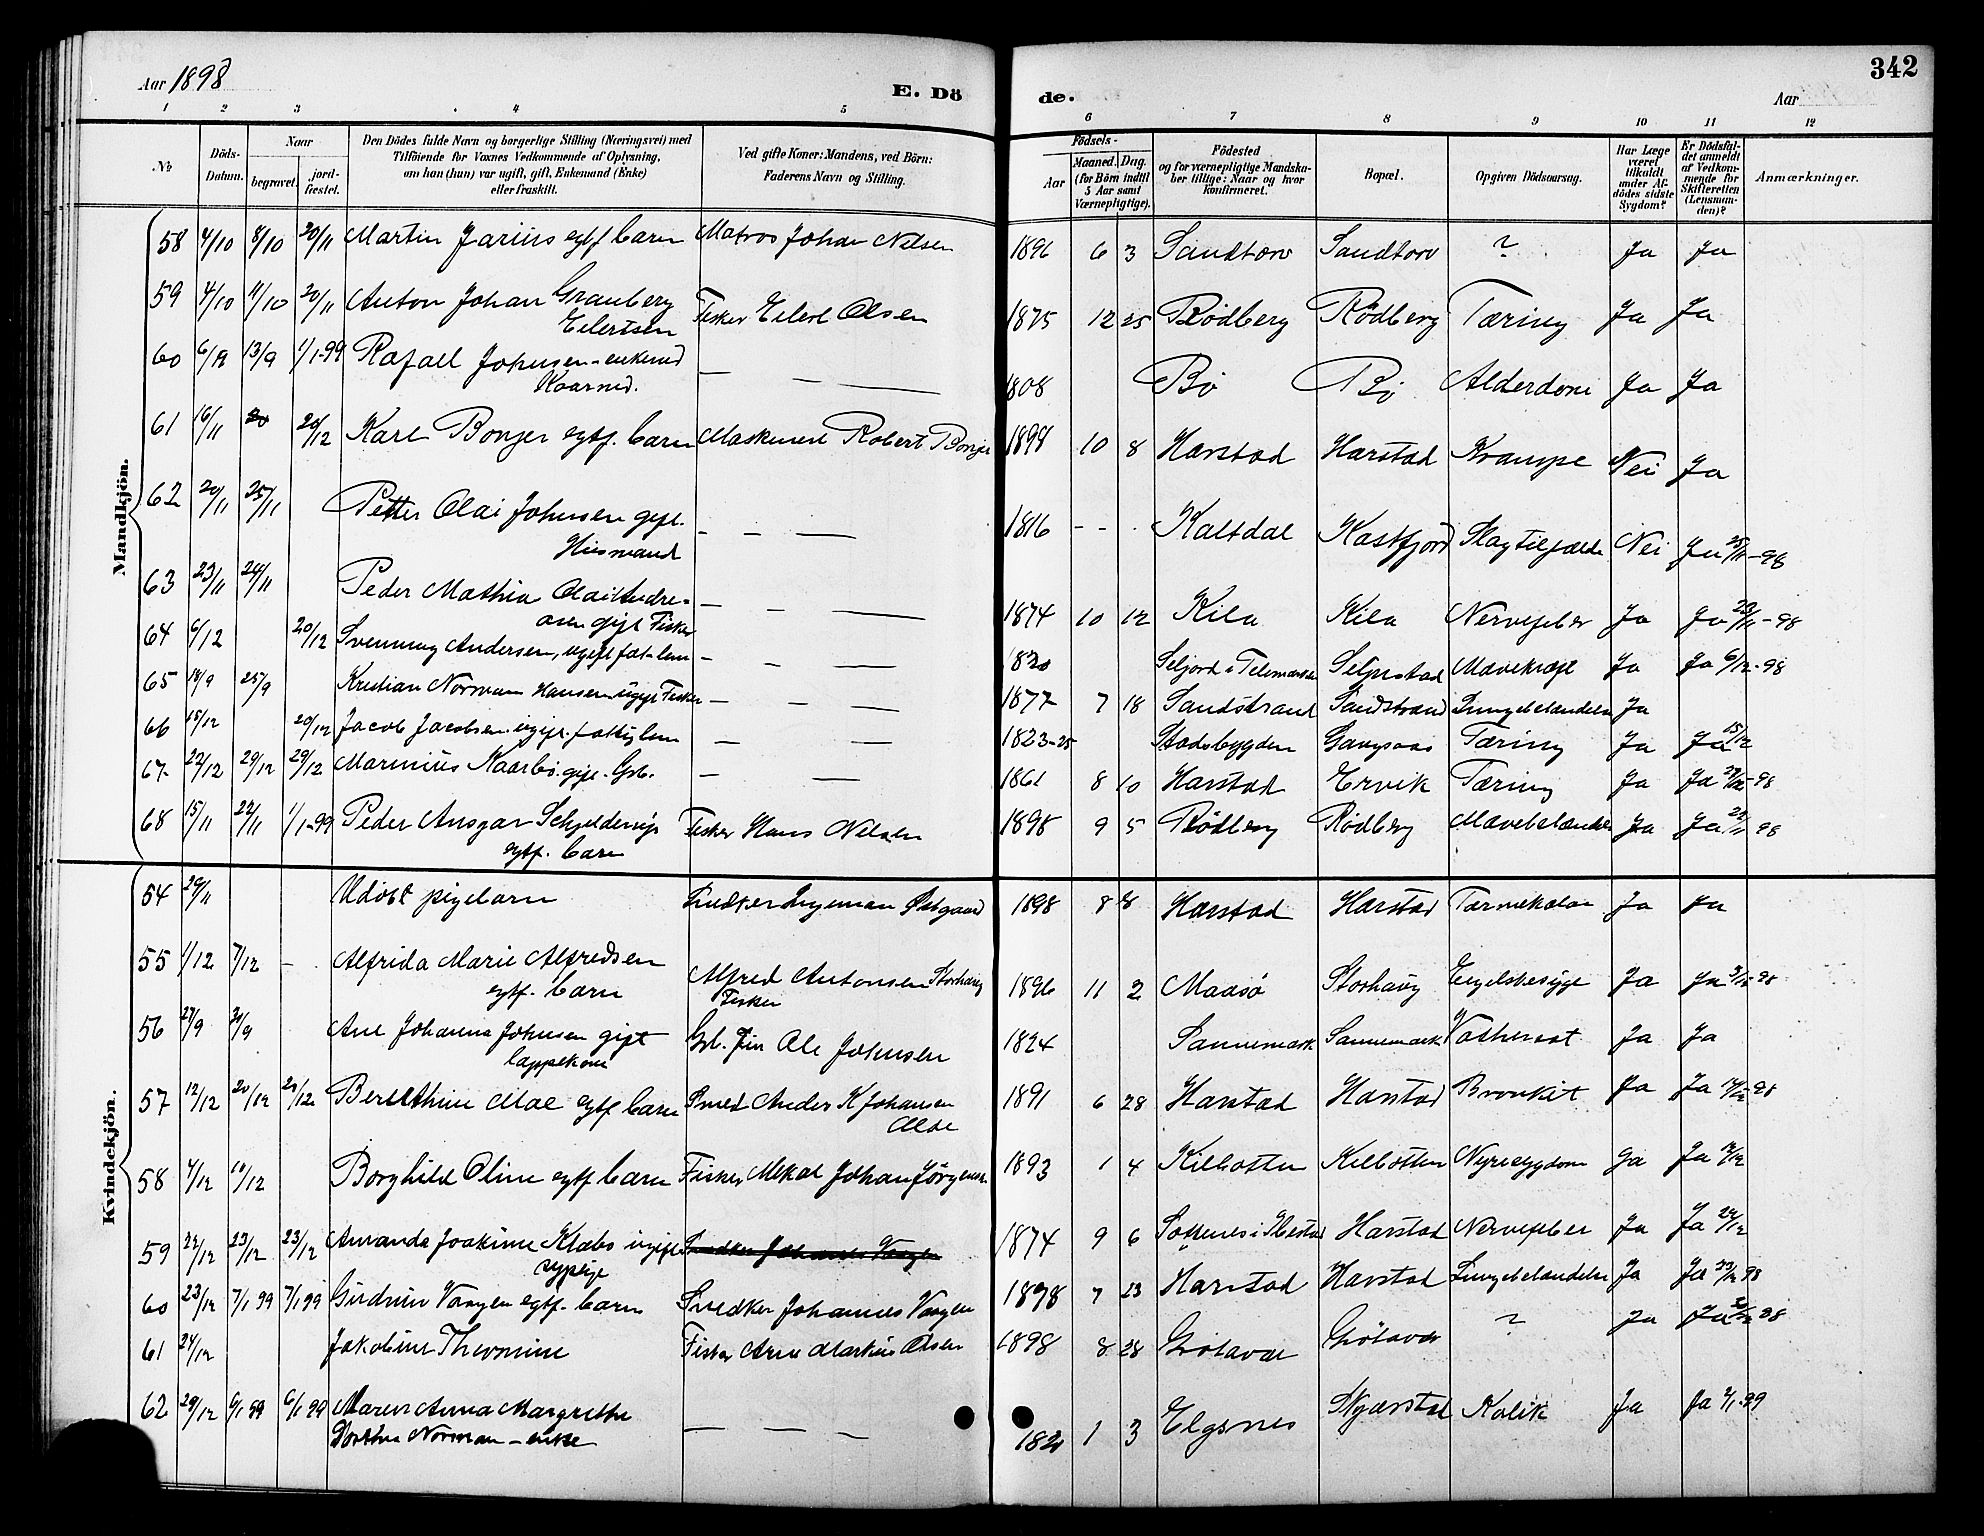 342
Aar 1898
E. Dö
de.
Aar
1 2 3 4 5 6 7 8 9 10 11 12
No.
Döds-Datum.
Naar
begravet.
jord-fæstet.
Den Dödes fulde Navn og borgerlige Stilling (Næringsvei) med
Tilföiende for Voxnes Vedkommende af Oplysning,
om han (hun) var ugift, gift, Enkemand (Enke)
eller fraskilt.
Ved gifte Koner: Mandens, ved Börn:
Faderens Navn og Stilling.
Födsels-
Aar
Maaned. Dag.
(for Börn indtil
5 Aar samt
Værnepligtige).
Födested
og for værnepligtige Mandska-
ber tillige: Naar og hvor
konfirmeret.
Bopæl.
Opgiven Dödsaarsag.
Har Læge
været
tilkaldt
under Af-
dödes sidste
Sygdom?
Er Dödsfal-
det anmeldt
af Vedkom-
mende for
Skifteretten
(Lensman-
den)?
Anmærkninger.
Mandkjön.
58 4/10 8/10 20/11 Martin Jarius egtf barn Matros Johan Nilsen 1896 6 3 Sandtorv Sandtorv ? Ja Ja
59 4/10 11/10 20/11 Anton Johan Granberg Fisker Eilert Olsen 1875 12 25 Rödberg Rödberg Tæring Ja Ja
Eilertsen
60 6/9 13/9 1/1-99 Rafael Johnsen - enkemd — — — 1808 Bö Bö Alderdom Ja Ja
Kaarmd.
61 16/11 20/12 Karl Bonjer egtf. barn Maskinist Robert Bonjer 1898 10 8 Harstad Harstad Krampe Nei Ja
62 20/11 25/11 Petter Olai Johnsen gift. — — — 1816 - - . Kaltdal Kastfjord Slagtilfælde Nei Ja 25/11-98
Husmand
63 23/11 24/11 Peder Mathia Olai Andre= — — — 1874 10 12 Kila Kila Nervefeber Ja Ja 23/11-98
asen gift Fisker
64 6/12 20/12 Svenning Andersen, ugift fat-lem — — — 1820 Seljord i Telemarken Selnestad Mavekræft Ja Ja 6/12-98
65 18/9 25/9 Kristian Norman Hansen ugift Fisker — — — 1877 7 18 Sandstrand Sandstrand Lungebetændelse Ja
66 15/12 20/12 Jacob Jacobsen ugift. fattiglem — — 1823-25 Stadsbygden Gangsaas Tæring Ja Ja 15/12
67 22/12 29/12 29/12 Marinius Kaarbö. gift. Grb. — — 1861 8 10 Harstad Ervik Tæring Ja Ja 27/12-98
68 15/11 22/11 1/1-99 Peder Ansgar Schjelderup Fisker Hans Nilsen 1898 9 5 Rödberg Rödberg Mavebetændelse Ja Ja 22/11 98
egtf. barn
Kvindekjön.
54 29/11 Udöbt pigebarn Snedker Ingeman Östgaard 1898 8 Harstad Harstad Tarmekatar Ja Ja
55 1/12 7/12 - Alfrida Marie Alfredsen Alfred Antonsen Storhaug 1896 11 2 Maasö Storhaug Engelskesyge Ja Ja 3/12-98
egtf. barn Fisker
56 27/9 30/9 Ane Johanna Johnsen gift Grb. Fin Ole Johnsen 1824 Sannemark Sannemark Vathersot Ja Ja
lappekone
57 12/12 20/12 20/12 Berethine Moe egtf barn Smed Anders K Johansen 1891 6 28 Harstad Harstad Bronkit Ja Ja 14/12-98
Moe
58 4/12 10/12 Borghild Oline egtf barn Fisker Mikal Johan Jörgensen 1893 1 4 Kilbotten Kilbotten Nyresygdom Ja Ja
59 22/12 23/12 23/12 Amanda Joakime Klæbo ugift Snedker Johannes Vangen 1874 9 6 i Ibestad Harstad Nervefeber Ja Ja 24/12
sypige
60 23/12 7/1 99 7/1 99 Gudrun Vangen egtf. barn Snedker Johannes Vangen 1898 7 23 Harstad Harstad Lungebetændelse Ja Ja 23/12 98
61 24/12 Jakobine Theomine Fisker Arne Markus Olsen 1898 8 28 Grötavær Grötavær ? Ja Ja 98
62 29/12 6/1 99 6/1 99 Maren Anna Margrethe — — — 1820 1 3 Elgsnes Nyærstad Kolik Ja Ja 2/1-99
Dorthea Norman - enke